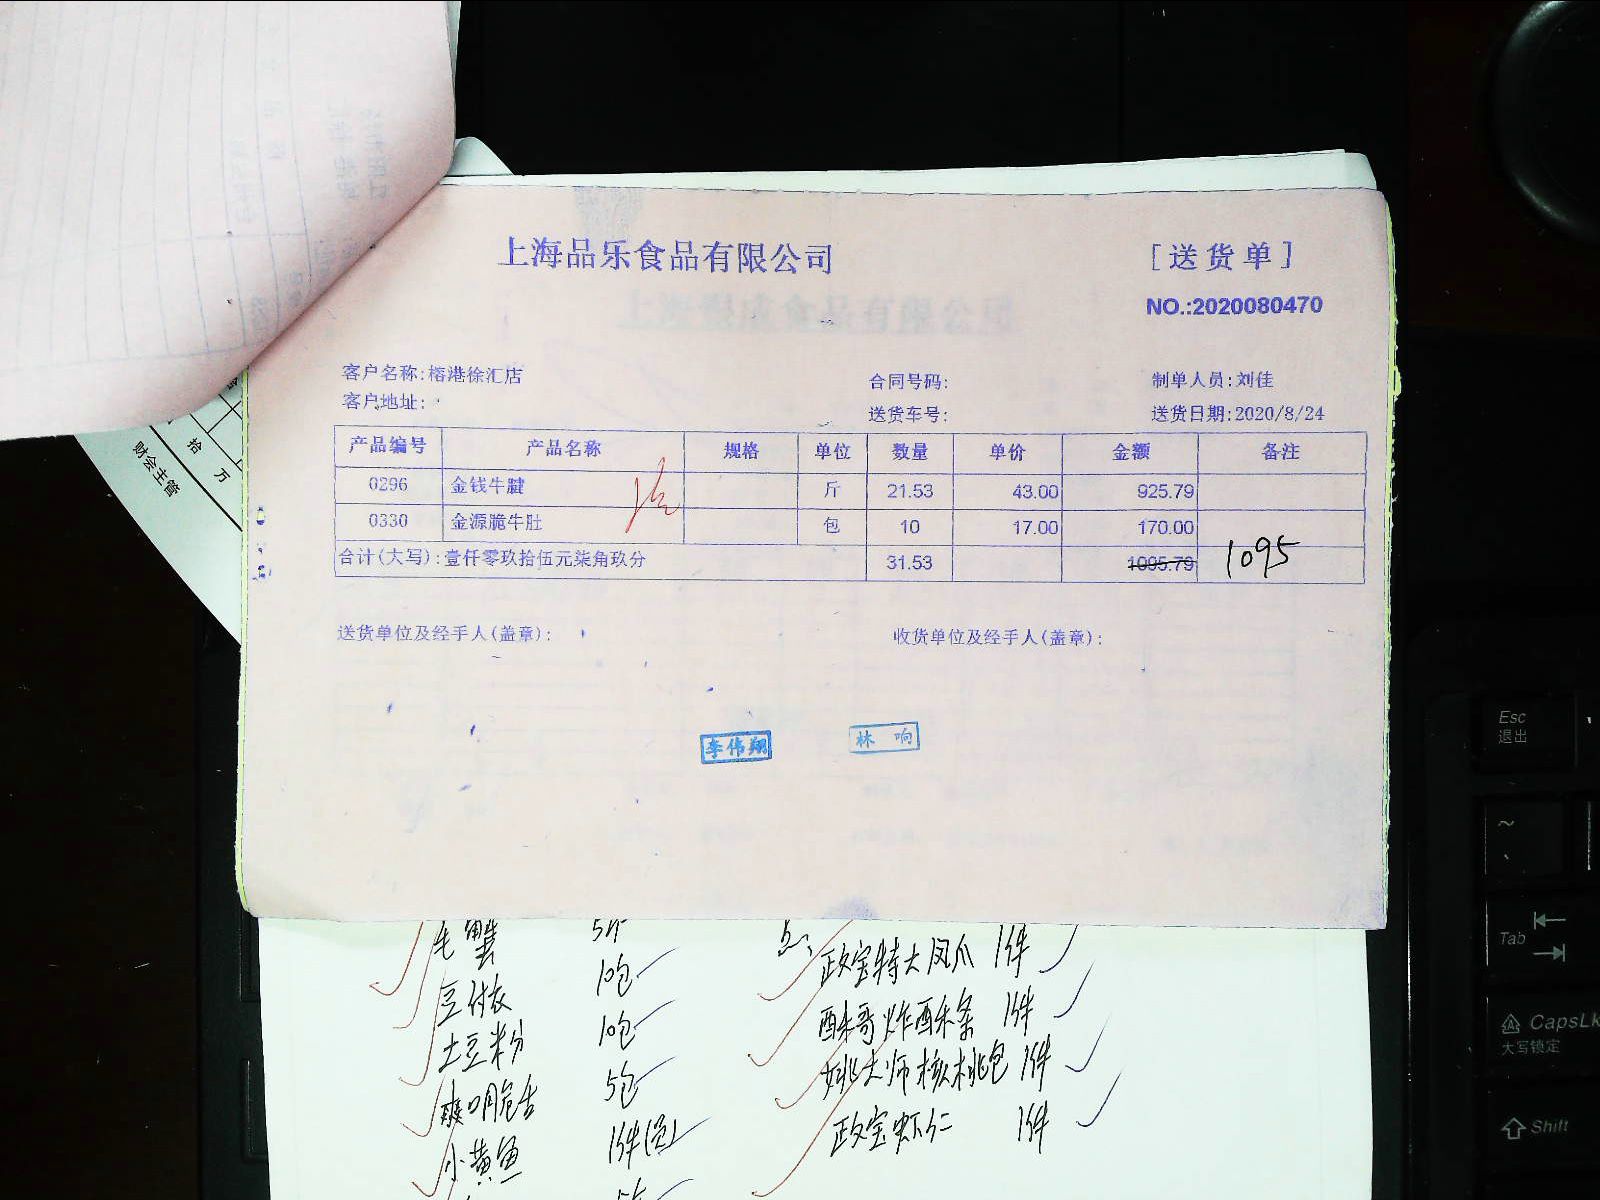 上海品乐食品有限公司
[送货单]
NO.:2020080470
客户名称:榕港徐汇店
合同号码:
制单人员:刘佳
客户地址:
送货车号:
送货日期:2020/8/24
产品编号 产品名称 规格 单位 数量 单价 金额 备注
0296 金钱牛腱 斤 21.53 43.00 925.79
0330 金源脆牛肚 包 10 17.00 170.00
合计(大写):壹仟零玖拾伍元柒角玖分 31.53 1095.79 1095
送货单位及经手人(盖章):
收货单位及经手人(盖章):
李伟翔
林响
拾万
财会主管
毛蟹 5个
豆付衣 10包
土豆粉 10包
5包
小黄鱼 1件
政宝特大凤爪 1件
酥哥炸酥条 1件
姚大师核桃包 1件
政宝虾仁 1件
Esc
退出
~
Tab
CapsLk
大写锁定
Shift